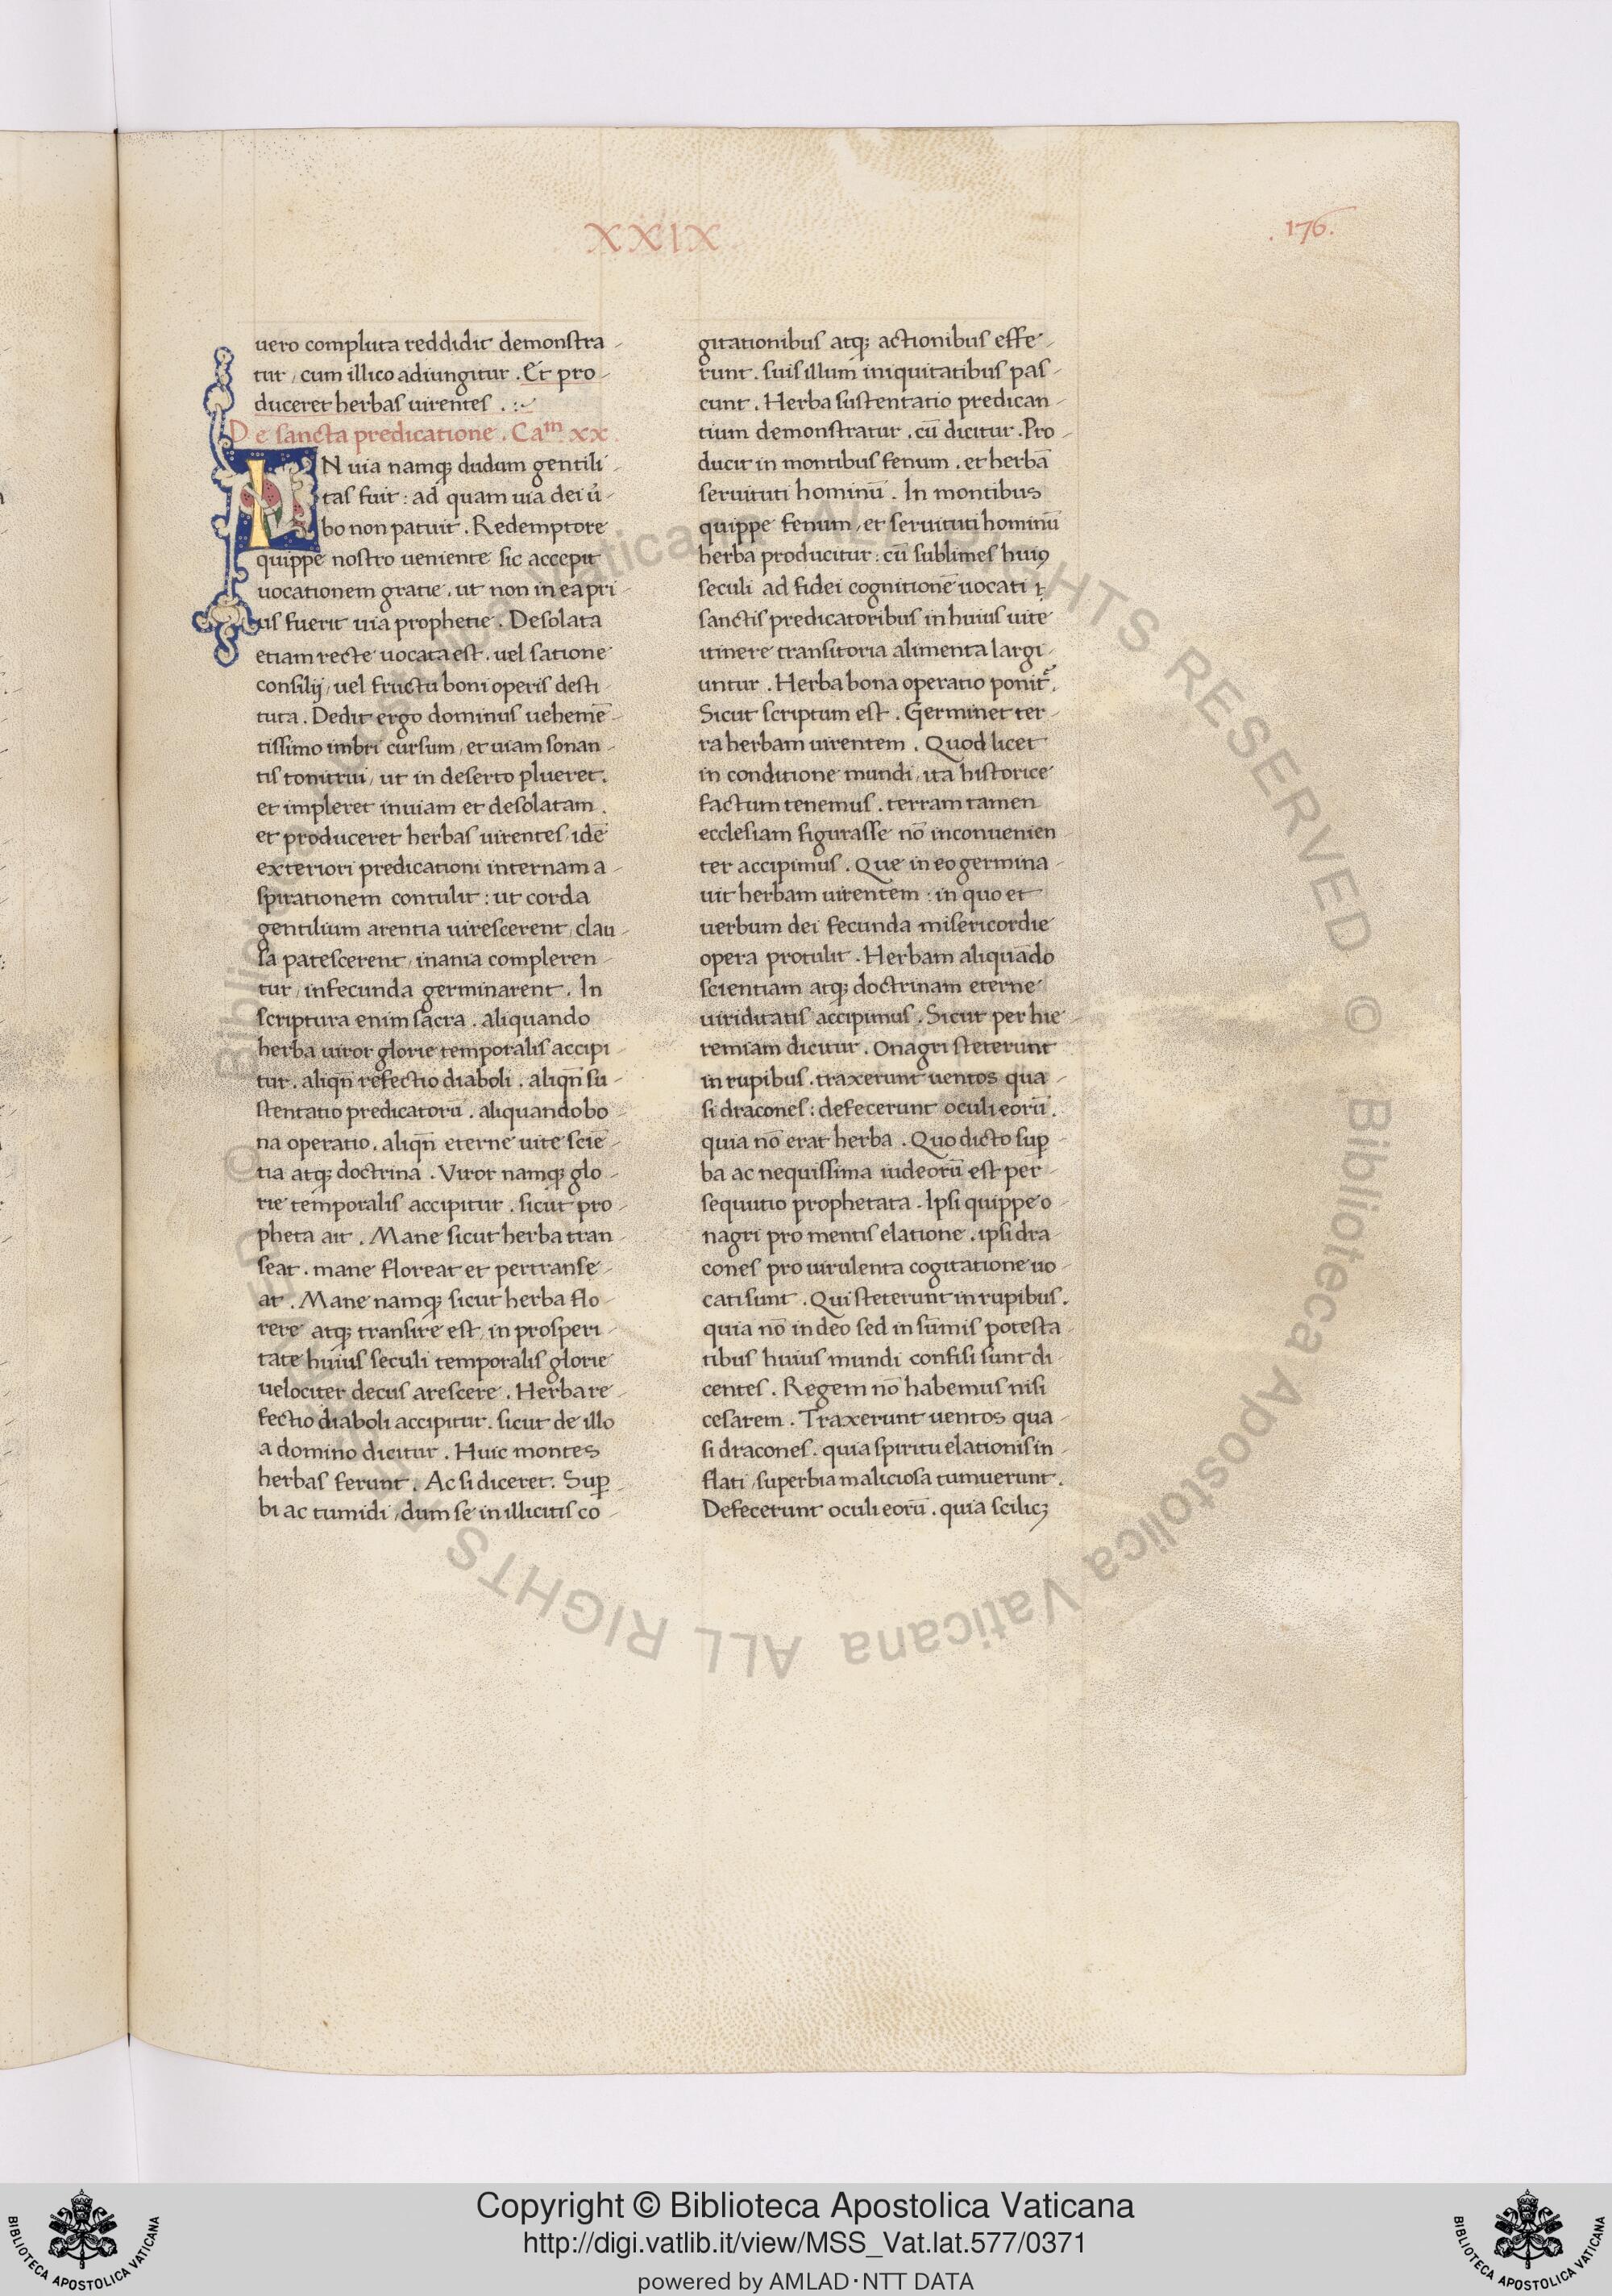 XXIX
.176.
uero compluta reddidit demonstra-
tur, cum illico adiungitur. Et pro-
duceret herbas uirentes.
De sancta predicatione. Caᵐ xx.
IN uia namq; dudum gentili-
tas fuit: ad quam uia dei u̓-
bo non patuit. Redemptore
quippe nostro ueniente sic accepit
uocationem gratie, ut non in ea pri-
us fuerit uia prophetie. Desolata
etiam recte uocata est, uel satione
consilij, uel fructu boni operis desti-
tuta. Dedit ergo dominus uehemē-
tissimo imbri cursum, et uiam sonan-
tis tonitrui, ut in deserto plueret.
et impleret inuiam et desolatam.
et produceret herbas uirentes, idē
exteriori predicationi internam a-
spirationem contulit: ut corda
gentilium arentia uirescerent, clau-
sa patescerent, inania compleren-
tur, infecunda germinarent. In
scriptura enim sacra. aliquando
herba uiror glorie temporalis accipi-
tur. aliqn̄ refectio diaboli. aliqn̄ su-
stentatio predicatorū. aliquando bo-
na operatio. aliqn̄ eterne uite sciē-
tia atq; doctrina. Viror namq; glo-
rie temporalis accipitur. sicut pro-
pheta ait. Mane sicut herba tran-
seat. mane floreat et pertranse-
at. Mane namq; sicut herba flo-
rere atq; transire est, in prosperi-
tate huius seculi temporalis glorie
uelociter decus arescere. Herba re-
fectio diaboli accipitur. sicut de illo
a domino dicitur. Huic montes
herbas ferunt. Ac si diceret. Suꝑ-
bi ac tumidi, dum se in illicitis co-
gitationibus atq; actionibus effe-
runt. suis illum iniquitatibus pas-
cunt. Herba sustentatio predican-
tium demonstratur. cū dicitur. Pro-
ducit in montibus fenum. et herbā
seruituti hominū. In montibus
quippe fenum, et seruituti hominū
herba producitur: cū sublimes huiꝯ
seculi ad fidei cognitionē uocati
sanctis predicatoribus in huius uite
itinere transitoria alimenta largi-
untur. Herba bona operatio ponit᷑.
Sicut scriptum est. Germinet ter-
ra herbam uirentem. Quod licet
in conditione mundi, ita historice
factum tenemus. terram tamen
ecclesiam figurasse nō inconuenien-
ter accipimus. Que in eo germina-
uit herbam uirentem: in quo et
uerbum dei fecunda misericordie
opera protulit. Herbam aliquādo
scientiam atq; doctrinam eterne
uiriditatis accipimus. Sicut per hie-
remiam dicitur. Onagri steterunt
in rupibus. traxerunt uentos qua-
si dracones: defecerunt oculi eorū.
quia nō erat herba. Quo dicto suꝑ-
ba ac nequissima iudeorū est per-
sequutio prophetata. Ipsi quippe o-
nagri pro mentis elatione. ipsi dra-
cones pro uirulenta cogitatione uo-
cati sunt. Qui steterunt in rupibus.
quia nō in deo sed in sūmis potesta-
tibus huius mundi confisi sunt di-
centes. Regem nō habemus nisi
cesarem. Traxerunt uentos qua-
si dracones. quia spiritu elationis in-
flati, superbia maliciosa tumuerunt.
Defecerunt oculi eorū. quia scilicꝫ
© Biblioteca Apostolica Vaticana ALL RIGHTS RESERVED © Biblioteca Apostolica Vaticana ALL RIGHTS RESERVED
Copyright © Biblioteca Apostolica Vaticana
http://digi.vatlib.it/view/MSS_Vat.lat.577/0371
powered by AMLAD·NTT DATA
BIBLIOTECA APOSTOLICA VATICANA
BIBLIOTECA APOSTOLICA VATICANA